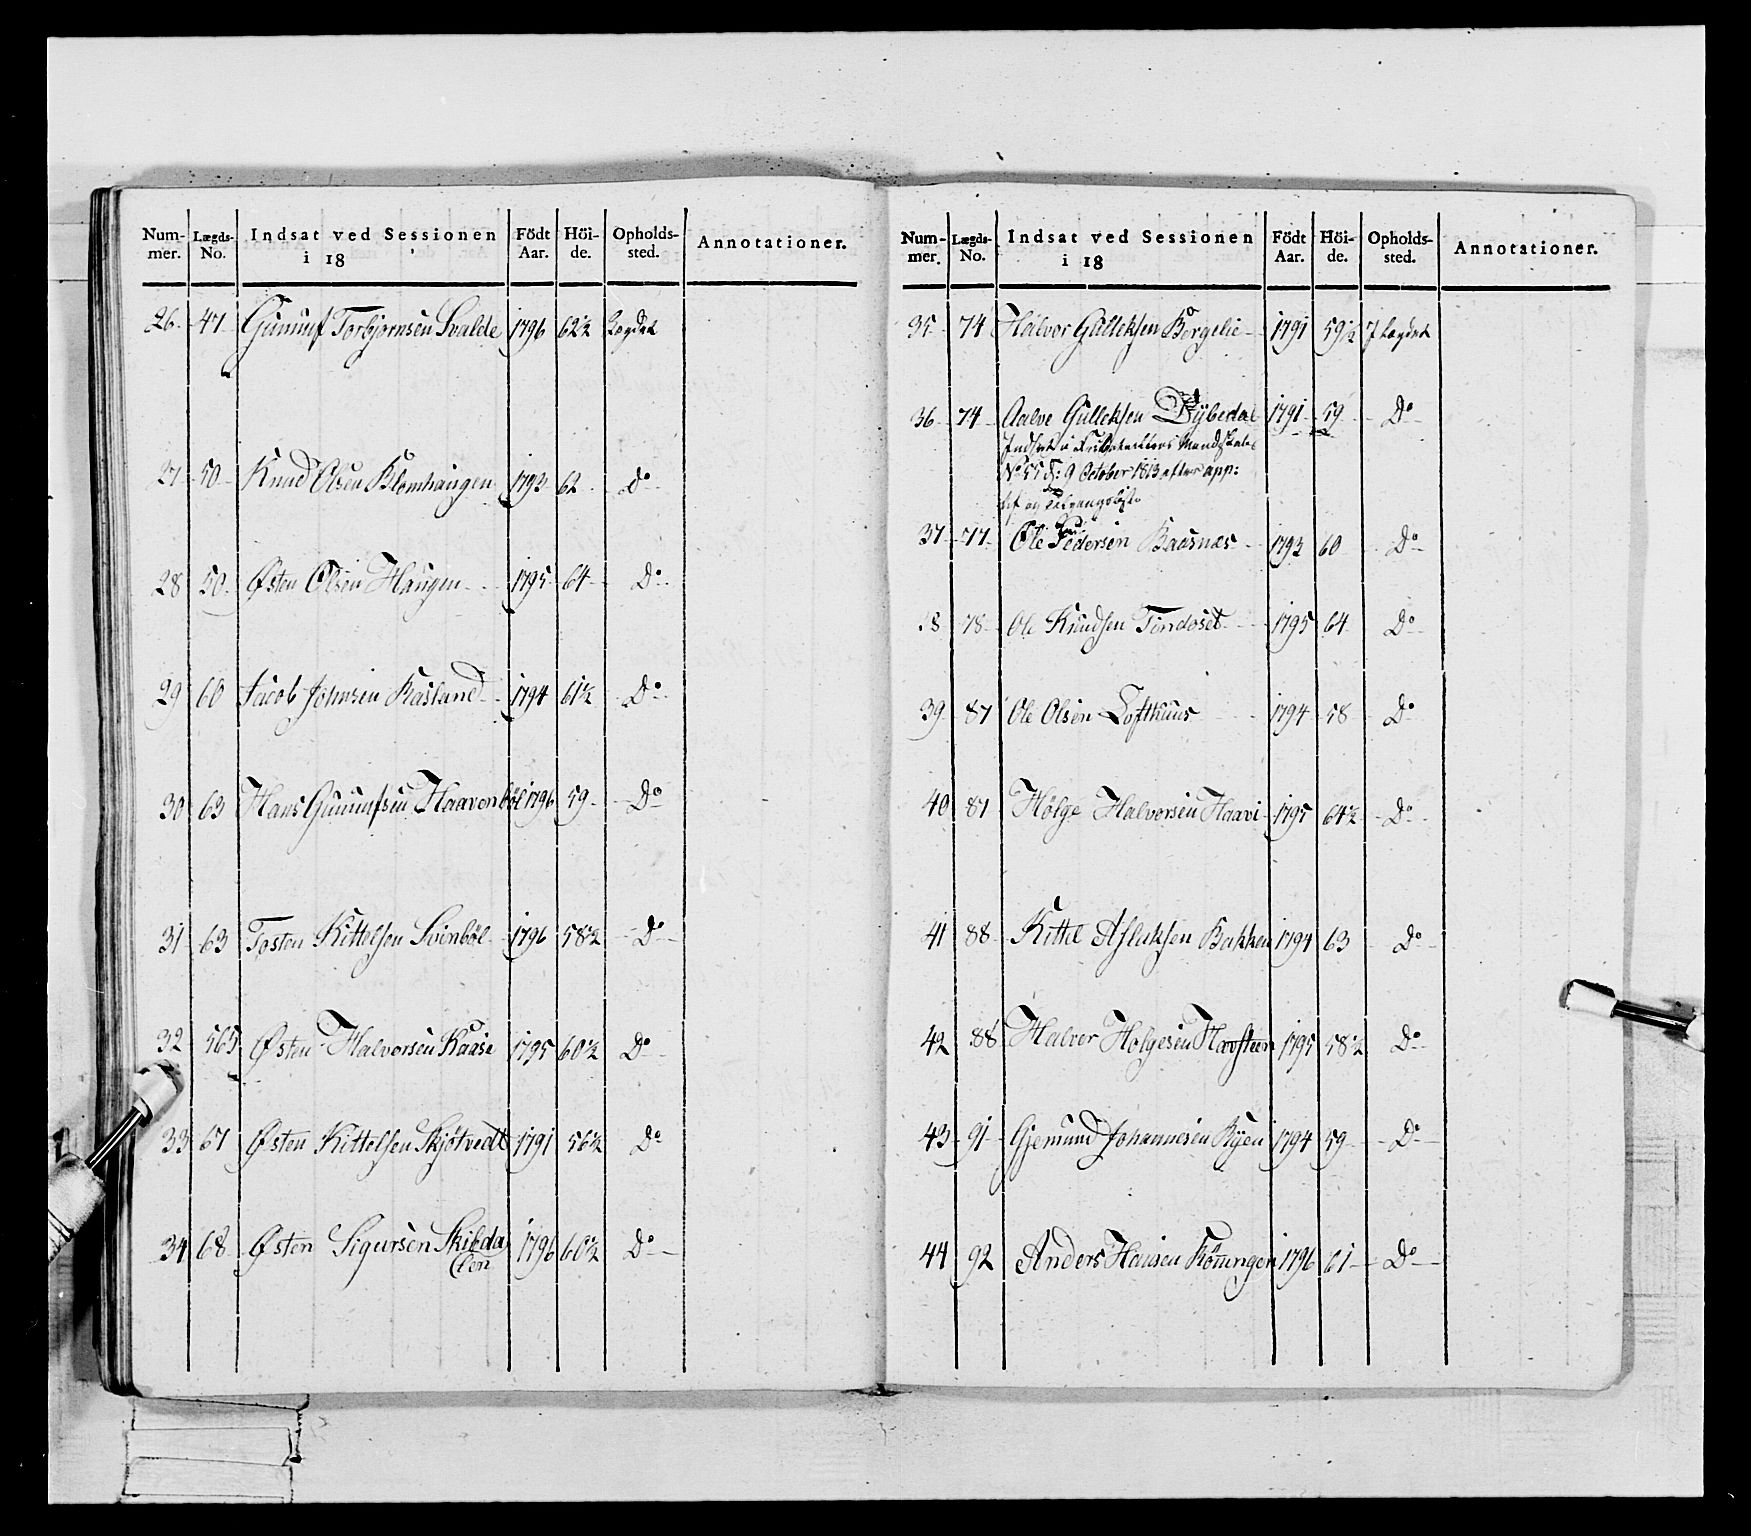 Num- Lægds- Indsat ved Sessionen Födt Höi- Opholds- Annotationer.
mer. No. i 18 Aar. de. sted.
26. 47. Gunuuf Torbjørnsen Svalde 1796 62½ Lægdet
27 50 Knud Olsen Blomhaugen 1793 62 Do
28 50. Østen Olsen Haugen 1795 64 Do
29 60 Jacob Johnsen Rasland 1794 61½ Do
30 63 Hans Gunuufsen Haavenböl 1796 59 Do
31 63 Tosten Kittelsen Svinböl 1796 58½ Do
32 565 Østen Halvorsen Kaase 1795 60½ Do
33 67 Østen Kittelsen Skjötvedt 1791 56½ Do
34 68 Østen Sigursen Skibda 1796 60½ Do
len
Num- Lægds- Indsat ved Sessionen Födt Höi- Opholds- Annotationer.
mer. No. i 18 Aar. de. sted.
35 74 Halvor Gulleksen Bergelie 1791 59½ J Lægdet
36 74 Aalve Gulleksen Dybedal 1791 59 Do
Indsat i Mandskabs
No 55 d: 9 October 1813 efter app:
og
37 77 Ole Pedersen Baasnæs 1793 60 Do
38 78 Ole Knudsen Tindoset 1795 64 Do
39 87 Ole Olsen Lofthuus 1794 58 Do
40 87 Holge Halvorsen Haavi 1795 64½ Do
41 88 Kittel Aslaksen Bakken 1794 63 Do
42 88 Halvor Holgesen Havsteen 1795 58½ Do
43 91 Gjemund Johannesen Ryen 1794 59 Do
44 92 Anders Hansen Könungen 1796 61 Do